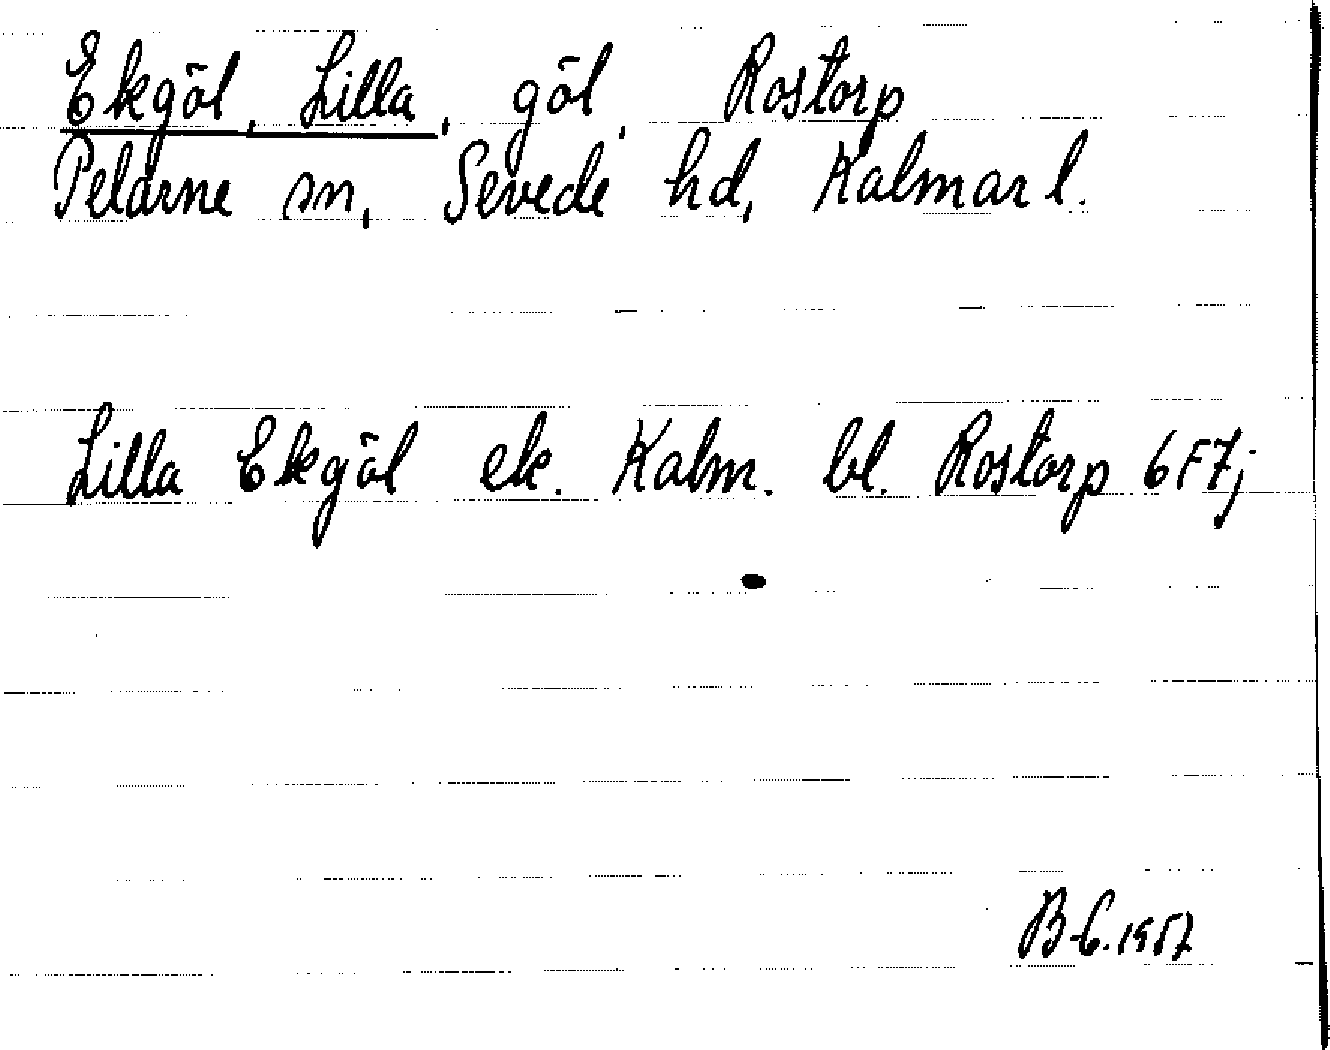 Ekgöl, Lilla, göl, Rostorp
Pelarne sn, Sevede hd, Kalmar l.
Lilla Ekgöl ek. Kalm. bl. Rostorp 6F7j
B-C. 1957